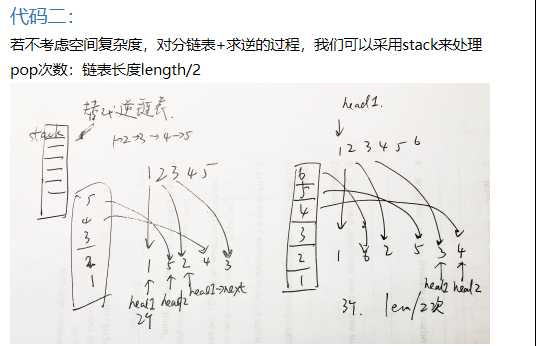 代码二：
若不考虑空间复杂度，对分链表+求逆的过程，我们可以采用stack来处理
pop次数：链表长度length/2
替代逆链表.
stack
1→2→3→4→5
1 2 3 4 5
5
4
3
2
1
1 5 2 4 3
head1 head2 head1→next
head1.
1 2 3 4 5 6
6
5
4
3
2
1
1 6 2 5 3 4
head1 head2
len/2次